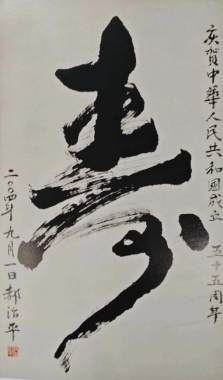 庆贺中華人民共和國成立五十五周年
寿
二〇〇四年九月一日郝治平